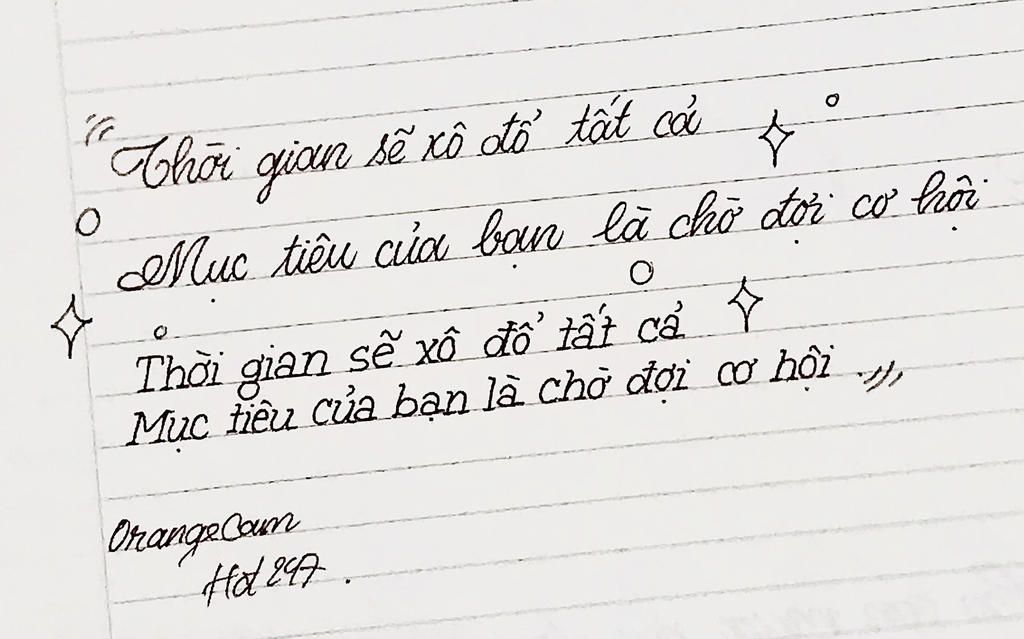 "Thời gian sẽ xô đổ tất cả
Mục tiêu của bạn là chờ đợi cơ hội
Thời gian sẽ xô đổ tất cả
Mục tiêu của bạn là chờ đợi cơ hội."
OrangeCam
Hot 247.